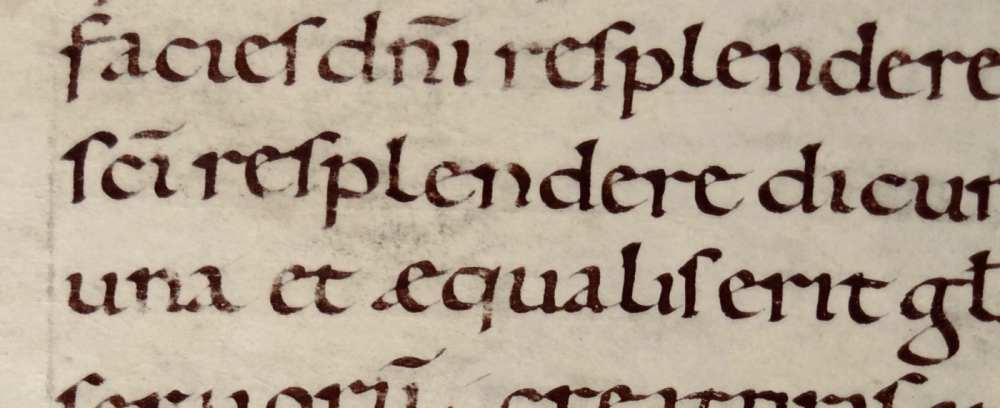 facieſ dn̄i reſplendere
ſcī reſplendere dicun
una et æqualiſ erit gł
ſeruorū